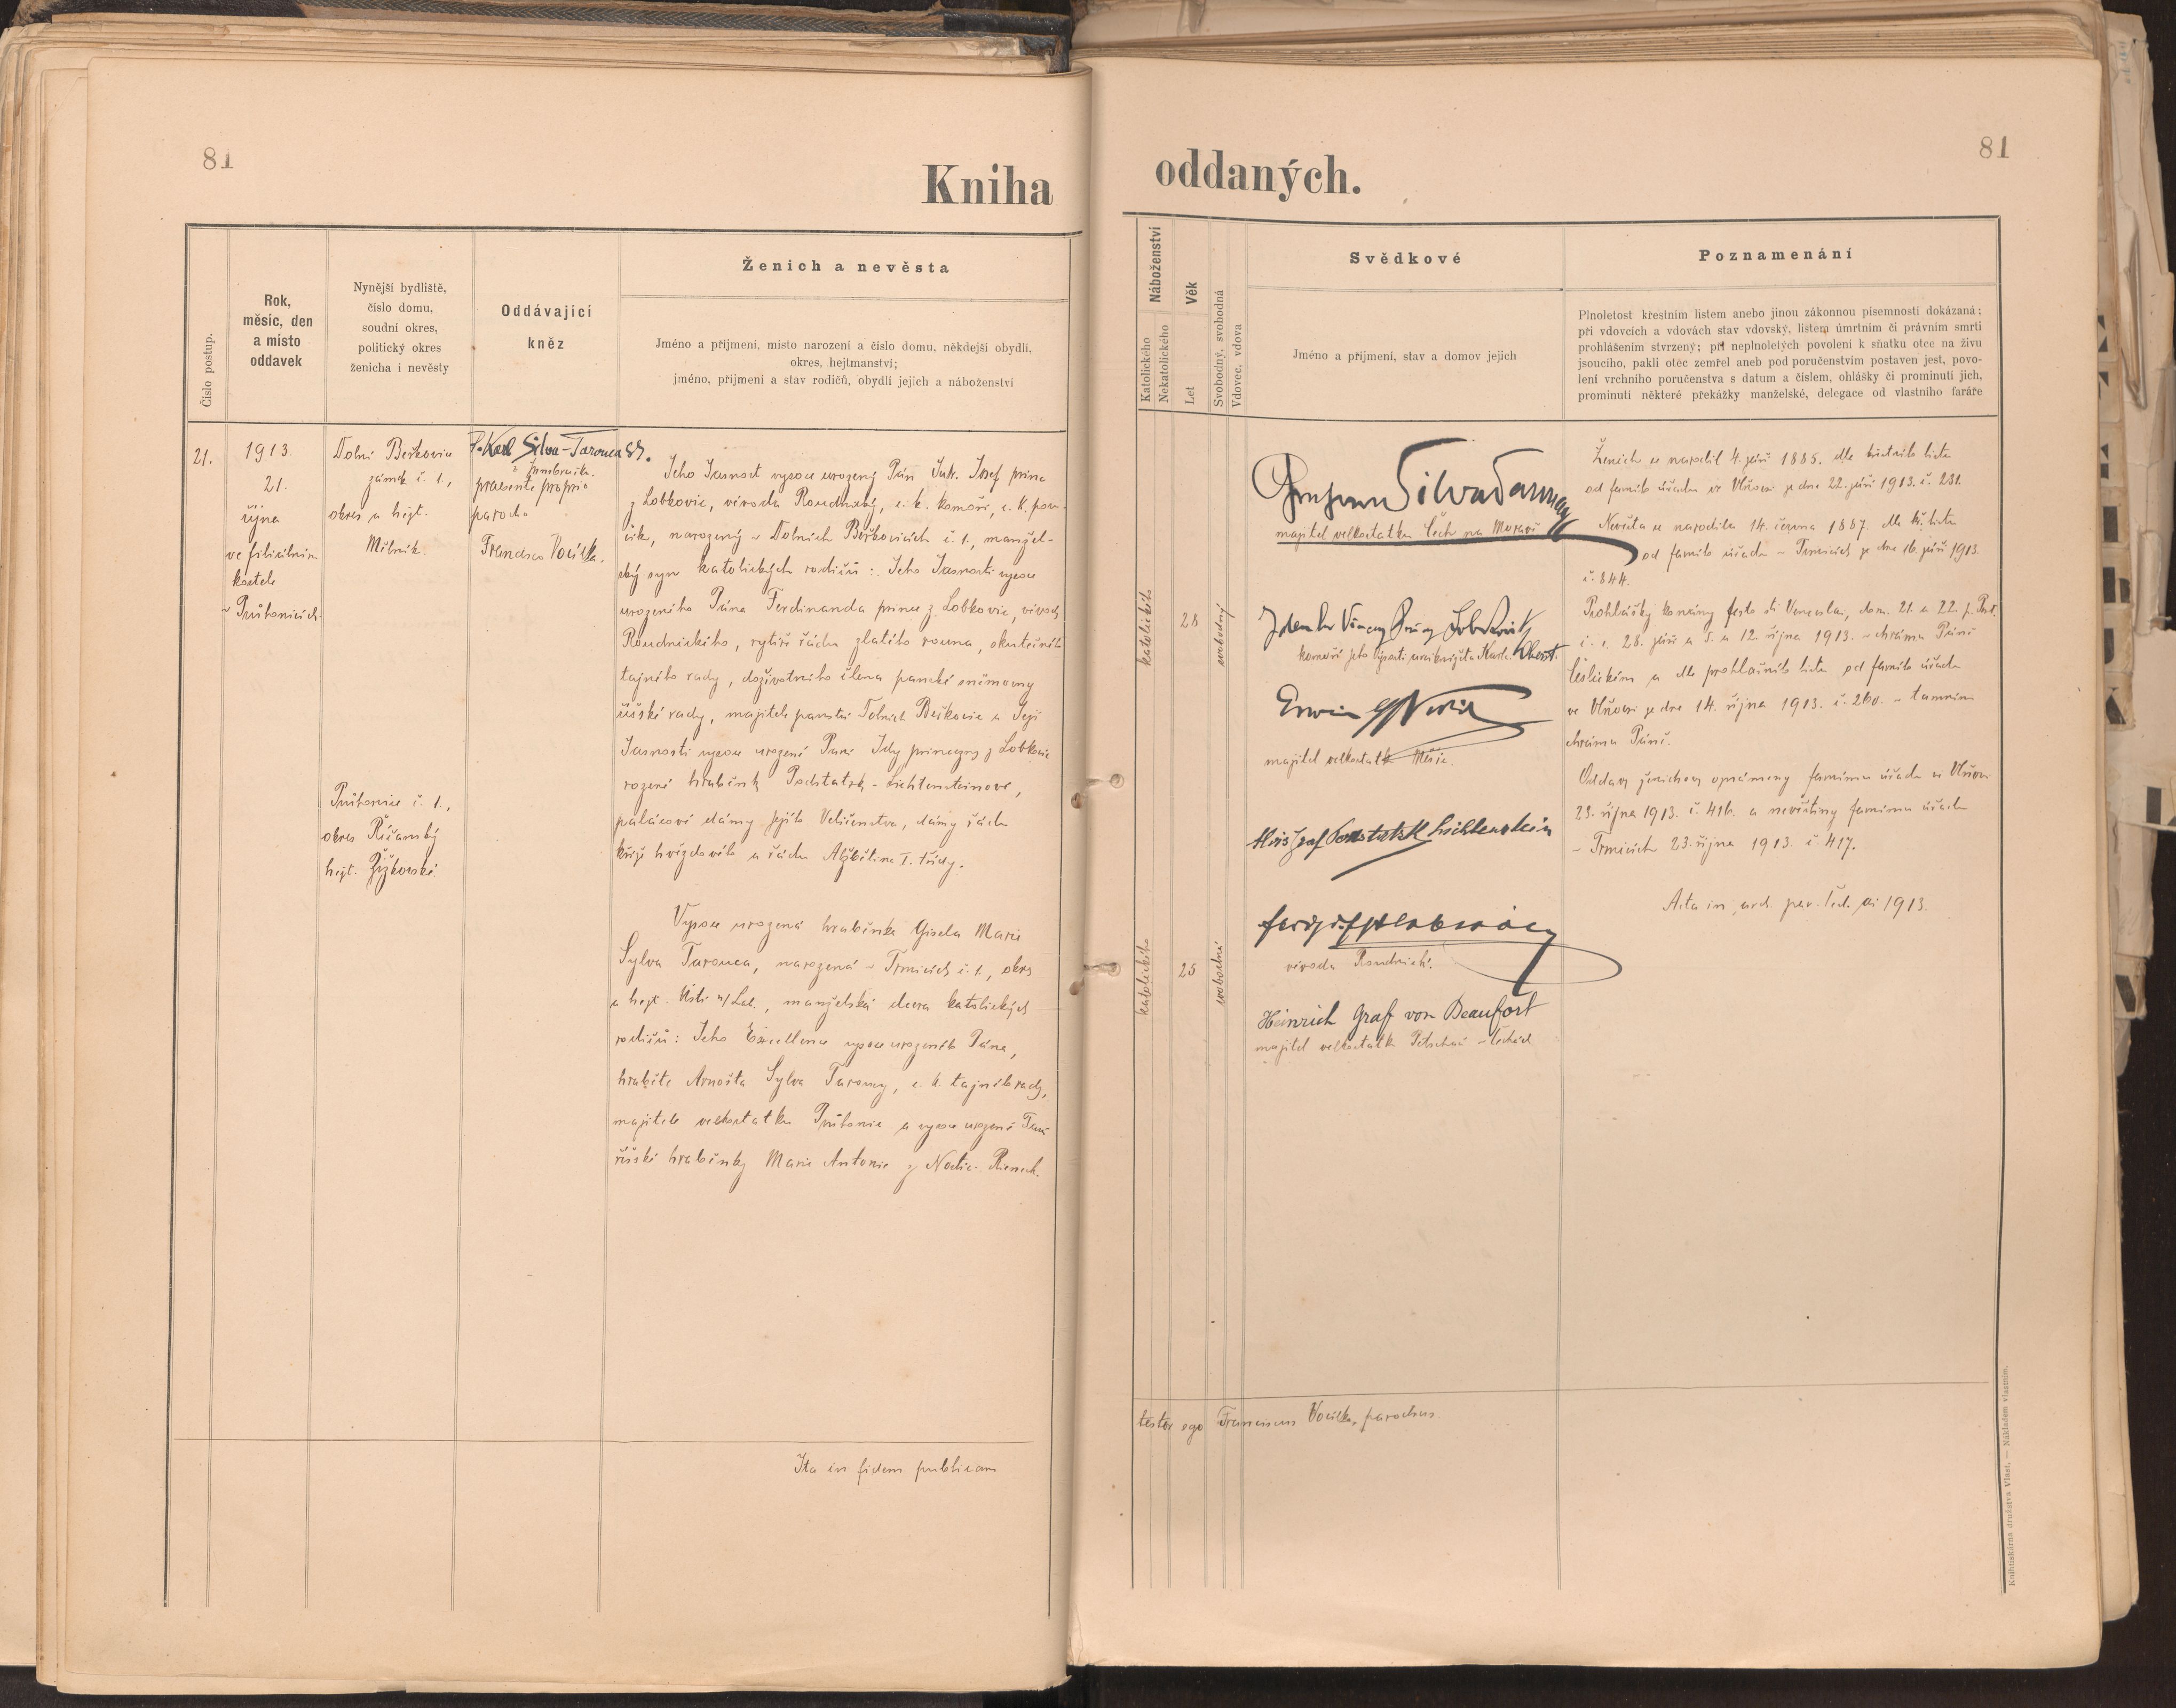 81
81
Kniha
oddaných.
Číslo postup.
Rok,
měsíc, den
a místo
oddavek
Nynější bydliště,
číslo domu,
soudní okres,
politický okres
ženicha i nevěsty
Oddávající
kněz
Ženich a nevěsta
Jméno a příjmení, místo narození a číslo domu, někdejší obydlí,
okres, hejtmanství;
jméno, příjmení a stav rodičů, obydlí jejich a náboženství
21.
1913.
21.
října
ve filiálním
kostele
v Průhonicích.
Dolní Beřkovice
zámek č. 1.,
okres a hejt.
Mělník.
Průhonice č. 1.,
okres Říčanský
hejt. Žižkovské.
P. Karl Silva-Tarouca SJ.
z Innsbrucku.
praesente proprio
parocho
Francisco Vocílka.
Jeho Jasnost vysoce urozený Pán Josef princ
z Lobkovic, vévoda Roudnický, c. k. komoří, c. k. poru-
čík, narozený v Dolních Beřkovicích č. 1., manžel-
ský syn katolických rodičů: Jeho Jasnosti vysoce
urozeného Pána Ferdinanda prince z Lobkovic, vévody
Roudnického, rytíře řádu zlatého rouna, skutečného
tajného rady, doživotního člena panské sněmovny
říšské rady, majitele panství Dolních Beřkovic a Její
Jasnosti vysoce urozené Paní Idy princezny z Lobkovic
rozené hraběnky Podstatzky-Lichtensteinové,
palácové dámy Jejího Veličenstva, dámy řádu
kříže hvězdového a řádu Alžbětina I. třídy.
Vysoce urozená hraběnka Gisela Marie
Sylva Tarouca, narozená v Trmicích č. 1., okres
a hejt. Ústí n/Lab., manželská dcera katolických
rodičů: Jeho Excellence vysoce urozeného Pána,
hraběte Arnošta Sylva Taroucy, c. k. tajného rady,
majitele velkostatku Průhonic a vysoce urozené Paní
říšské hraběnky Marie Antonie z Nostic-Rieneck.
Ita in fidem publicam
Náboženství
Katolického
Nekatolického
Věk
Let
Svobodný, svobodná
Vdovec, vdova
Svědkové
Jméno a příjmení, stav a domov jejich
Poznamenání
Plnoletost křestním listem anebo jinou zákonnou písemností dokázaná;
při vdovcích a vdovách stav vdovský, listem úmrtním či právním smrti
prohlášením stvrzený; při neplnoletých povolení k sňatku otce na živu
jsoucího, pakli otec zemřel aneb pod poručenstvím postaven jest, povo-
lení vrchního poručenstva s datum a číslem, ohlášky či prominutí jich,
prominutí některé překážky manželské, delegace od vlastního faráře
katolického
28
svobodný
katolického
25
svobodná
Silva Tarouca
majitel velkostatku Čech na Moravě
Zdenko Vincenz Prinz Lobkowitz
komoří Jeho Výsosti arciknížete Karla. Oberst.
Erwin Nostitz
majitel velkostatku Měšic.
Alois Graf Podstatzky Lichtenstein
vévoda Roudnický.
Heinrich Graf von Beaufort
majitel velkostatku Petschau v Čechách
Ženich se narodil 4. září 1885. dle křestního listu
od farního úřadu ve Vlňovsi ze dne 22. září 1913. č. 231.
Nevěsta se narodila 14. června 1887. dle kř. listu
od farního úřadu v Trmicích ze dne 16. září 1913.
č. 844.
Prohlášky konány festo sti Venceslai, dom. 21. a 22. p. Pent.
t. j. 28. září a 5. a 12. října 1913. v chrámu Páně
češlickém a dle prohlašního listu od farního úřadu
ve Vlňovsi ze dne 14. října 1913. č. 260. v tamním
chrámu Páně.
Oddavky ženichovy oznámeny farnímu úřadu ve Vlňovsi
23. října 1913. č. 416. a nevěstiny farnímu úřadu
v Trmicích 23. října 1913. č. 417.
Acta in arch. par. 1913.
testor ego Franciscus Vocílka, parochus.
Knihtiskárna družstva Vlast. — Nákladem vlastním.